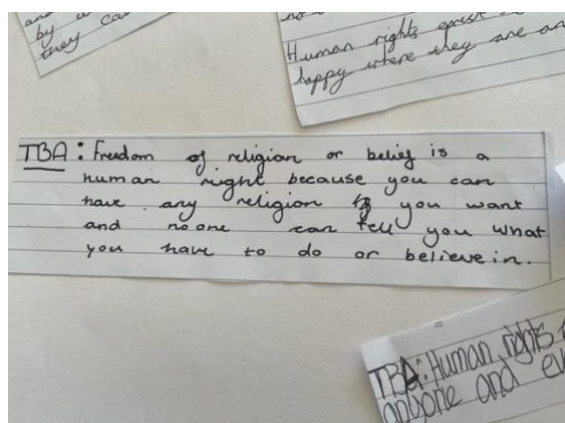 and
by
they ca
Human rights exist
happy where they are an
TBA: Freedom of religion or belief is a
human right because you can
have any religion you want
and no one can tell you what
you have to do or believe in.
TBA: Human rights
anyone and ev